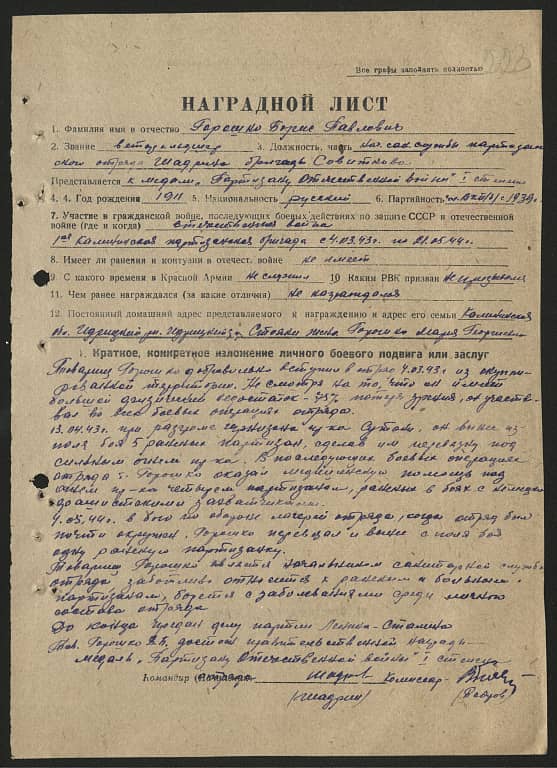 Все графы заполнять полностью
НАГРАДНОЙ ЛИСТ
1. Фамилия имя в отчество Горошко Борис Павлович
2. Звание ветфельдшер 3. Должность, часть нач. сан.службы партизан
ского отряда Шадрина бригады Совиткова
Представляется к медали „Партизану Отечественной войны" I степени
4. 4. Год рождения 1911 5. Национальность русский 6. Партийность чл. ВКП(б) с 1939г.
7. Участие в гражданской войне, последующих боевых действиях по защите СССР и отечественной
войне (где и когда) отечественная война
1ая Калининская партизанская бригада с 4.03.43г. по 21.05.44г.
8. Имеет ли ранения и контузии в отечест. войне не имеет
9 С какого времени в Красной Армии Не служил 10 Каким РВК призван Не призывался
11. Чем ранее награждался (за какие отличия) Не награждался
12. Постоянный домашний адрес представляемого к награждению и адрес его семьи Калининская
обл. Идрицкий р-н. Горошко Мария
I. Краткое, конкретное изложение личного боевого подвига или заслуг
Товарищ Горошко добровольно вступил в отряд 4.03.43г. из оккупи-
рованной территории. Не смотря на то, что он имеет
большой физический недостаток - 75% потери зрения, он участво-
вал во всех боевых операциях отряда.
13.04.43г. при разгроме гарнизона пр-ка Сутоки, он вынес из
поля боя 5 раненых партизан, сделав им перевязку под
сильным огнем пр-ка. В последующих боевых операциях
отряда т. Горошко оказал медицинскую помощь под
огнем пр-ка четырем партизанам, раненых в боях с немецко-
фашистскими захватчиками.
7.05.44г. в бою по обороне лагерей отряда, когда отряд был
почти окружен, Горошко перевязал и вынес с поля боя
одну раненую партизанку.
Товарищ Горошко является начальником санитарной службы
отряда заботливо относится к раненым и больным
партизанам, борется с заболеваниями среди личного
состава отряда
До конца предан делу партии Ленина-Сталина
Тов. Горошко Б.П. достоин правительственной награды-
медаль „Партизану Отечественной войны" I степени
Командир отряда Шадрин Комиссар-
(Шадрин) (Петров)